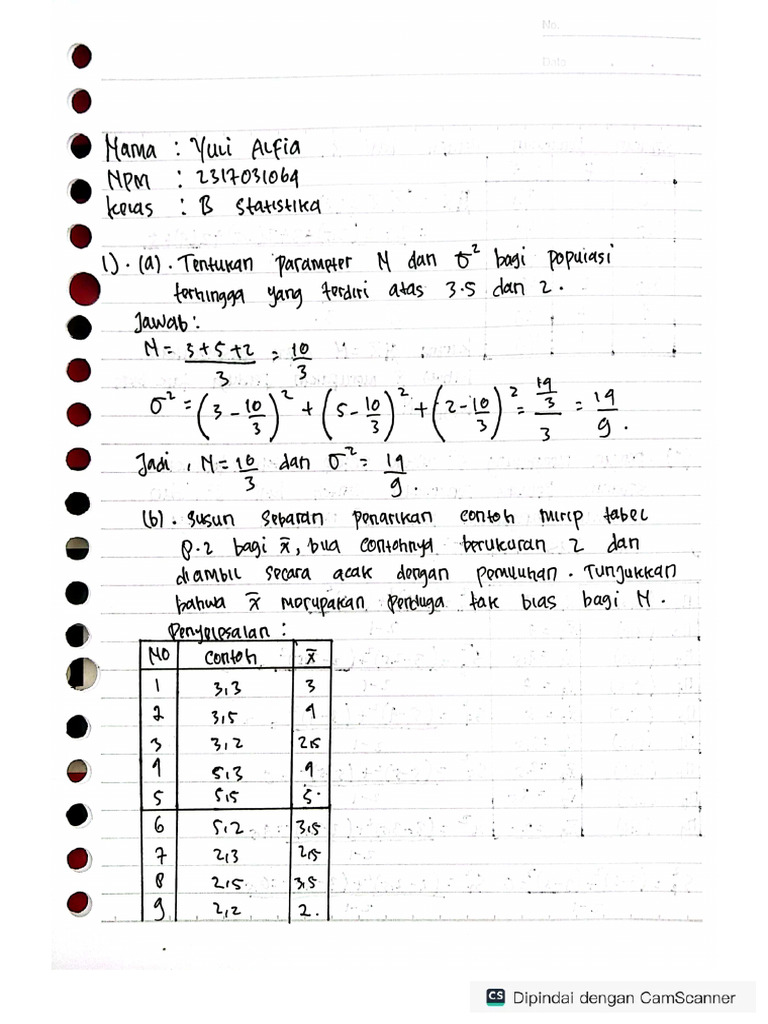 No.
Date
Nama : Yuli Alfia
NPM : 2317031064
Kelas : B Statistika
1). (a). Tentukan parameter M dan σ² bagi populasi
terhingga yang terdiri atas 3.5 dan 2.
Jawab:
M = (3+5+2)/3 = 10/3
σ² = (3 - 10/3)² + (5 - 10/3)² + (2 - 10/3)² = (14/3)/3 = 14/9.
Jadi, M = 10/3 dan σ² = 14/9.
(b). Susun sebaran penarikan contoh mirip tabel
8.2 bagi x̄, bila contohnya berukuran 2 dan
diambil secara acak dengan pemulihan. Tunjukkan
bahwa x̄ merupakan penduga tak bias bagi M.
Penyelesaian :
No Contoh x̄
1 3,3 3
2 3,5 4
3 3,2 2,5
4 5,3 4
5 5,5 5.
6 5,2 3,5
7 2,3 2,5
8 2,5 3,5
9 2,2 2.
CS Dipindai dengan CamScanner